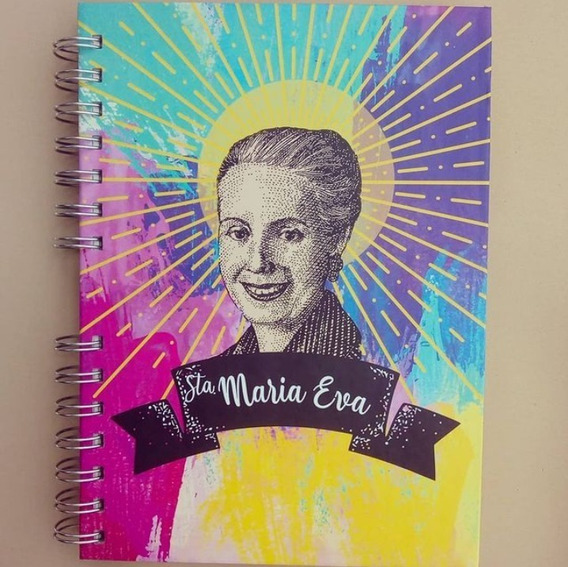 Sta. Maria Eva